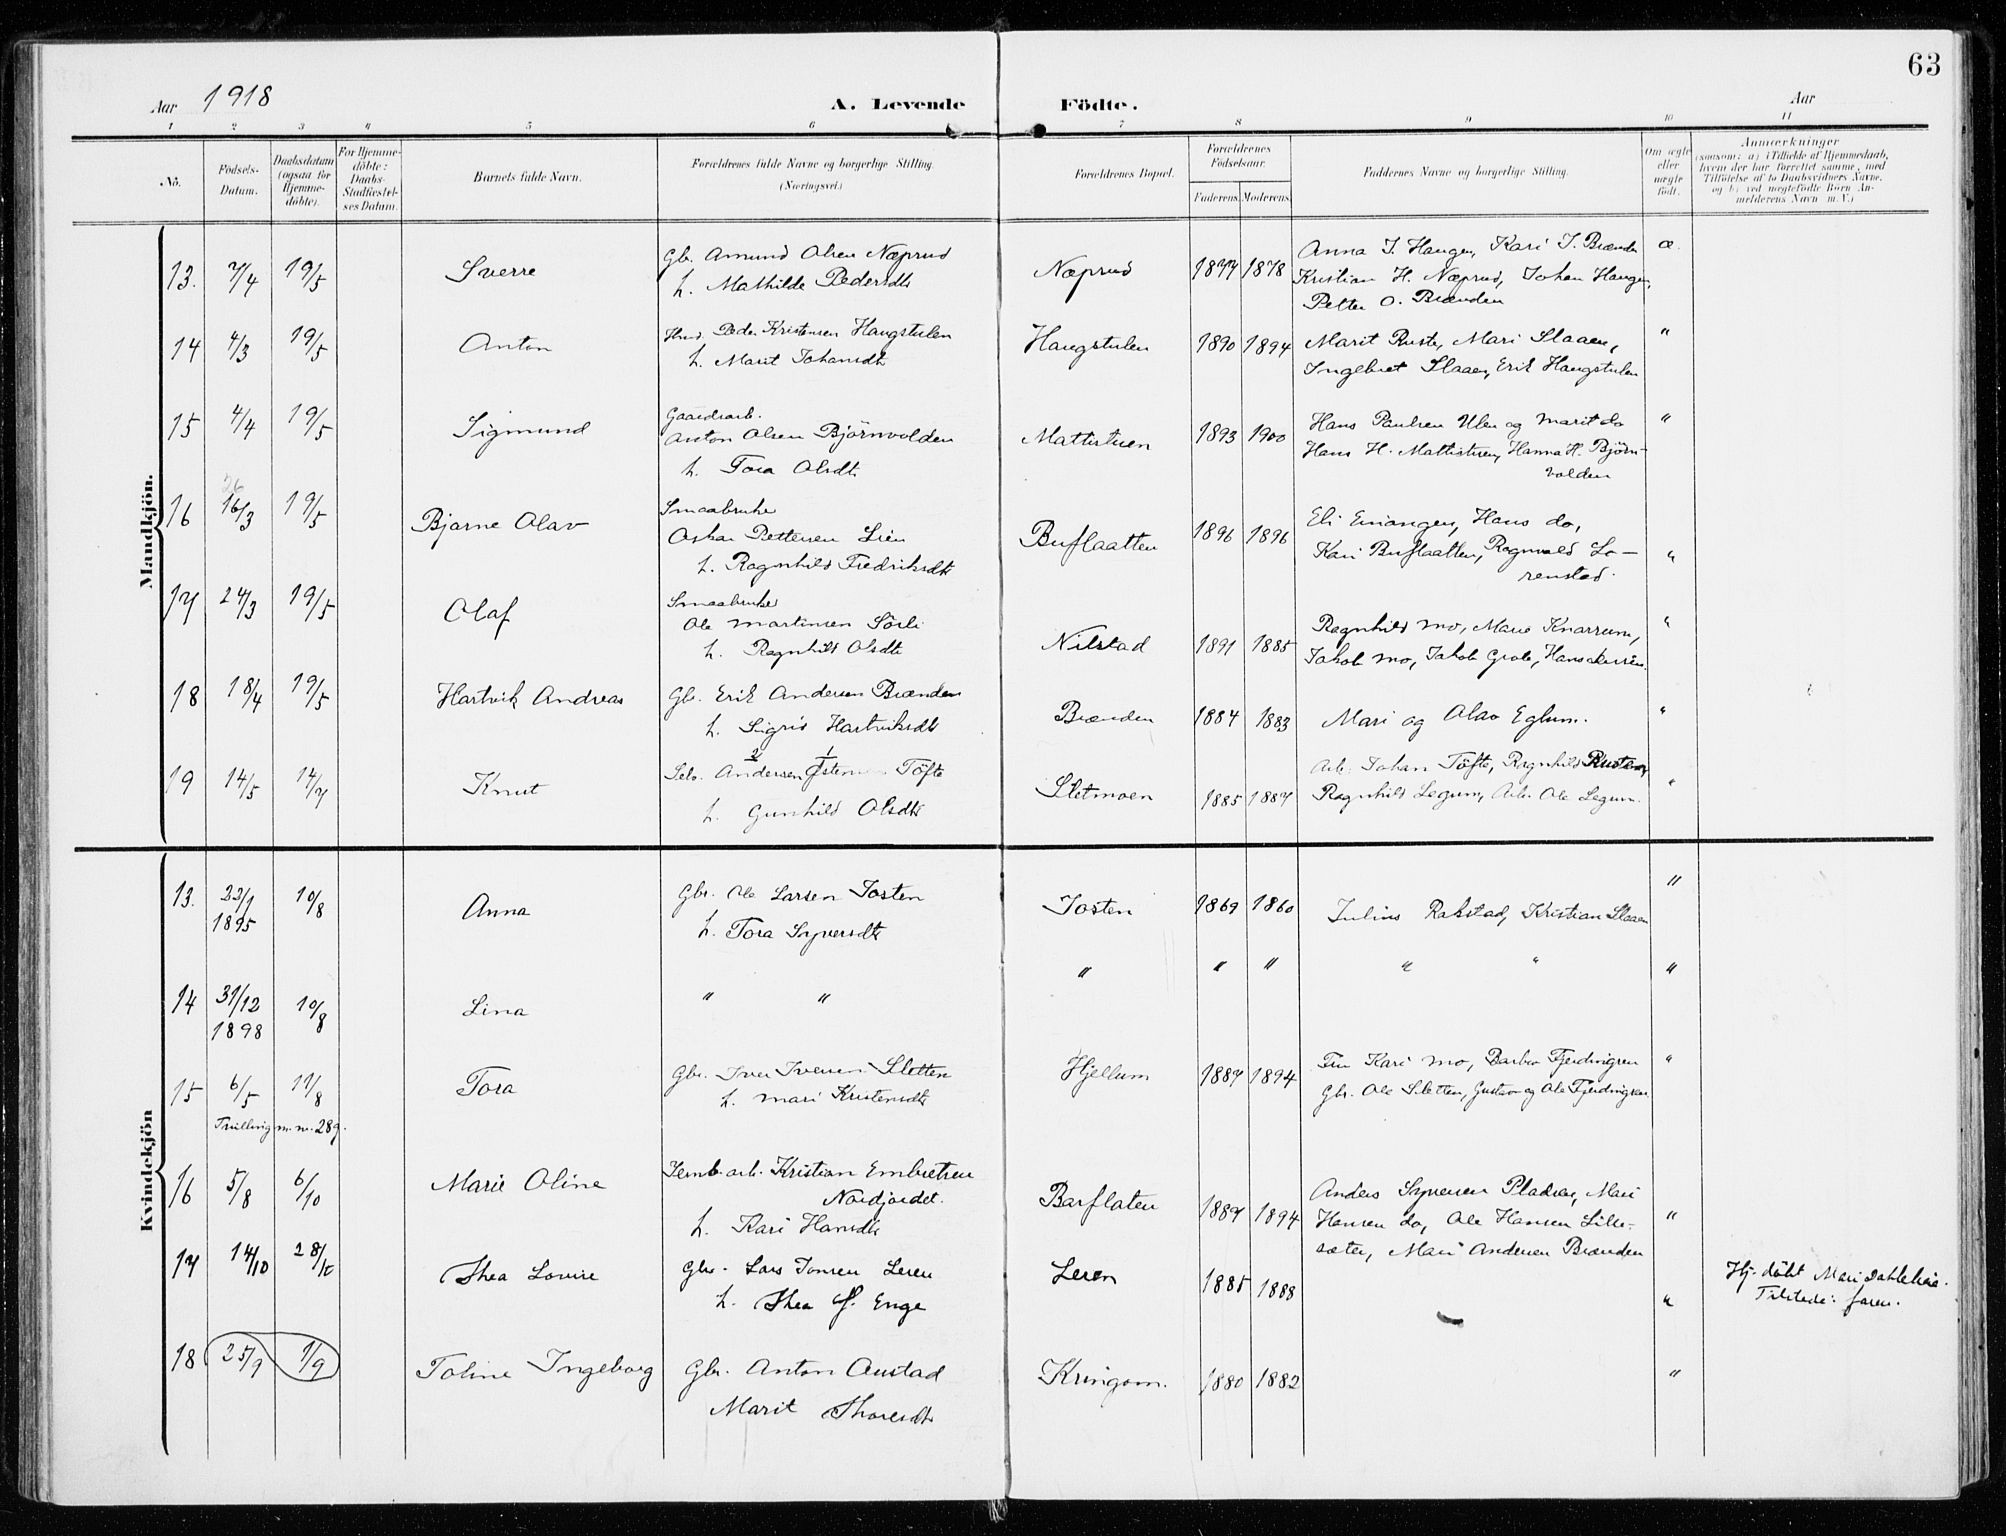 63
Aar 1918
A. Levende Födte.
Aar
1 2 3 4 5 6 7 8 9 10 11
No.
Födsels-
Datum.
Daabsdatum
(ogsaa for
Hjemme-
döbte).
For Hjemme-
döbte:
Daabs-
Stadfæstel-
ses Datum.
Barnets fulde Navn.
Forældrenes fulde Navne og borgerlige Stilling.
(Næringsvei.)
Forældrenes Bopæl.
Forældrenes
Födselsaar.
Faderens. Moderens.
Faddernes Navne og borgerlige Stilling.
Om ægte
eller
uægte
født.
Anmærkninger
(saasom: a) i Tilfælde af Hjemmedaab,
hvem der har forrettet samme, med
Tilföielse af to Daabsvidners Navne.
og b) ved uægtefödte Börn An-
melderens Navn m.V.)
Mandkjön.
13. 7/4 19/5 Sverre
Gb. Amund Olsen Næprud
h. Mathilde Pedersdt
Næprud 1877 1878
Anna J. Haugen, Kari J. Brænden
Kristian H. Næprud, Johan Haugen,
Petter O. Brænden
æ.
14 4/3 19/5 Anton
Hmd. Peder Kristensen Haugstulen
h. Marit Johansdt
Haugstulen 1890 1894
Marit Ruste, Mari Slaaen,
Ingebret Slaaen, Erik Haugstulen
"
15 4/4 19/5 Sigmund
Gaardarb.
Anton Olsen Björnvolden
h. Tora Olsdt
Mattistuen 1893 1900
Hans Paulsen Ulen og Marit do
Hans H. Mattistuen, Hanna H. Björn-
volden
"
26
16 16/3 19/5 Bjarne Olav
Smaabruker
Oskar Pettersen Lien
h. Ragnhild Fredriksdt
Buflaatten 1896 1896
Eli Eriangen, Hans do,
Kari Buflaatten, Ragnvald Lo-
renstad.
"
17 24/3 19/5 Olaf
Smaabruker
Ole Martinsen Sörli
h. Ragnhild Olsdt
Nilstad 1891 1885
Ragnhild Mo, Marie Knarrum,
Jakob Mo, Jakob Grote,
"
18 18/4 19/5 Hartvik Andreas
Gb. Erik Andersen Brænden
h. Sigrid Hartviksdt
Brænden 1884 1883
Mari og Olav Eglum.
"
2 1
19 14/5 14/7 Knut
Selv. Andersen Östen Töfte
h. Gunhild Olsdt
Sletmoen 1885 1887
Arb. Johan Töfte, Ragnhild Rusten,
Ragnhild Legum, Arb. Ole Legum.
"
Kvindekjön
13. 23/1 1895 10/8 Anna
Gbr. Ole Larsen Josten
h. Tora Syversdt
Josten 1869 1860
Julius Rakstad, Kristian Slaaen
"
14 31/12 1898 10/8 Lina
" "
" " " " " "
15 6/5 11/8 Tora
Gbr. Iver Iversen Sletten
h. Mari Kristensdt
Hjellum 1887 1894
Fru Kari Mo, Barbro Fjerdingren
Gbr. Ole Sletten, Gustav og Ole Fjerdingren
"
Trilling m. nr. 28 9.
16 5/8 6/10 Marie Oline
Jernb.arb. Kristian Embretsen
Nordjordet.
h. Kari Hansdt
Barflaten 1887 1894
Anders Syversen Pladsen, Mari
Hansen do, Ole Hansen Lille-
sæter, Mari Andersen Brænden
"
17 14/10 28/10 Thea Lovise
Gbr. Lars Jonsen Leren
h. Thea J. Enge
Leren 1885 1888
"
Hj. döbt Mari Dahleheie.
Tilstede: faren.
18 25/9 1/9 Toline Ingeborg
Gbr. Anton Austad
Marit Thoresdt
Kringom. 1880 1882
"